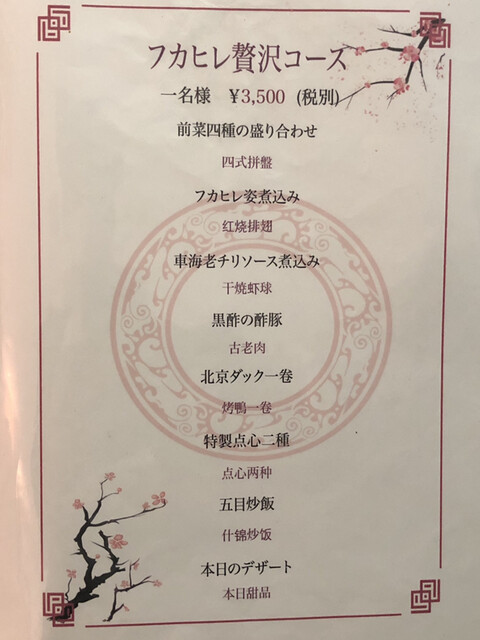 フカヒレ贅沢コース
一名様 ¥3,500 (税別)
前菜四種の盛り合わせ
四式拼盤
フカヒレ姿煮込み
红烧排翅
車海老チリソース煮込み
干焼虾球
黒酢の酢豚
古老肉
北京ダック一巻
烤鴨一卷
特製点心二種
点心两种
五目炒飯
什锦炒饭
本日のデザート
本日甜品